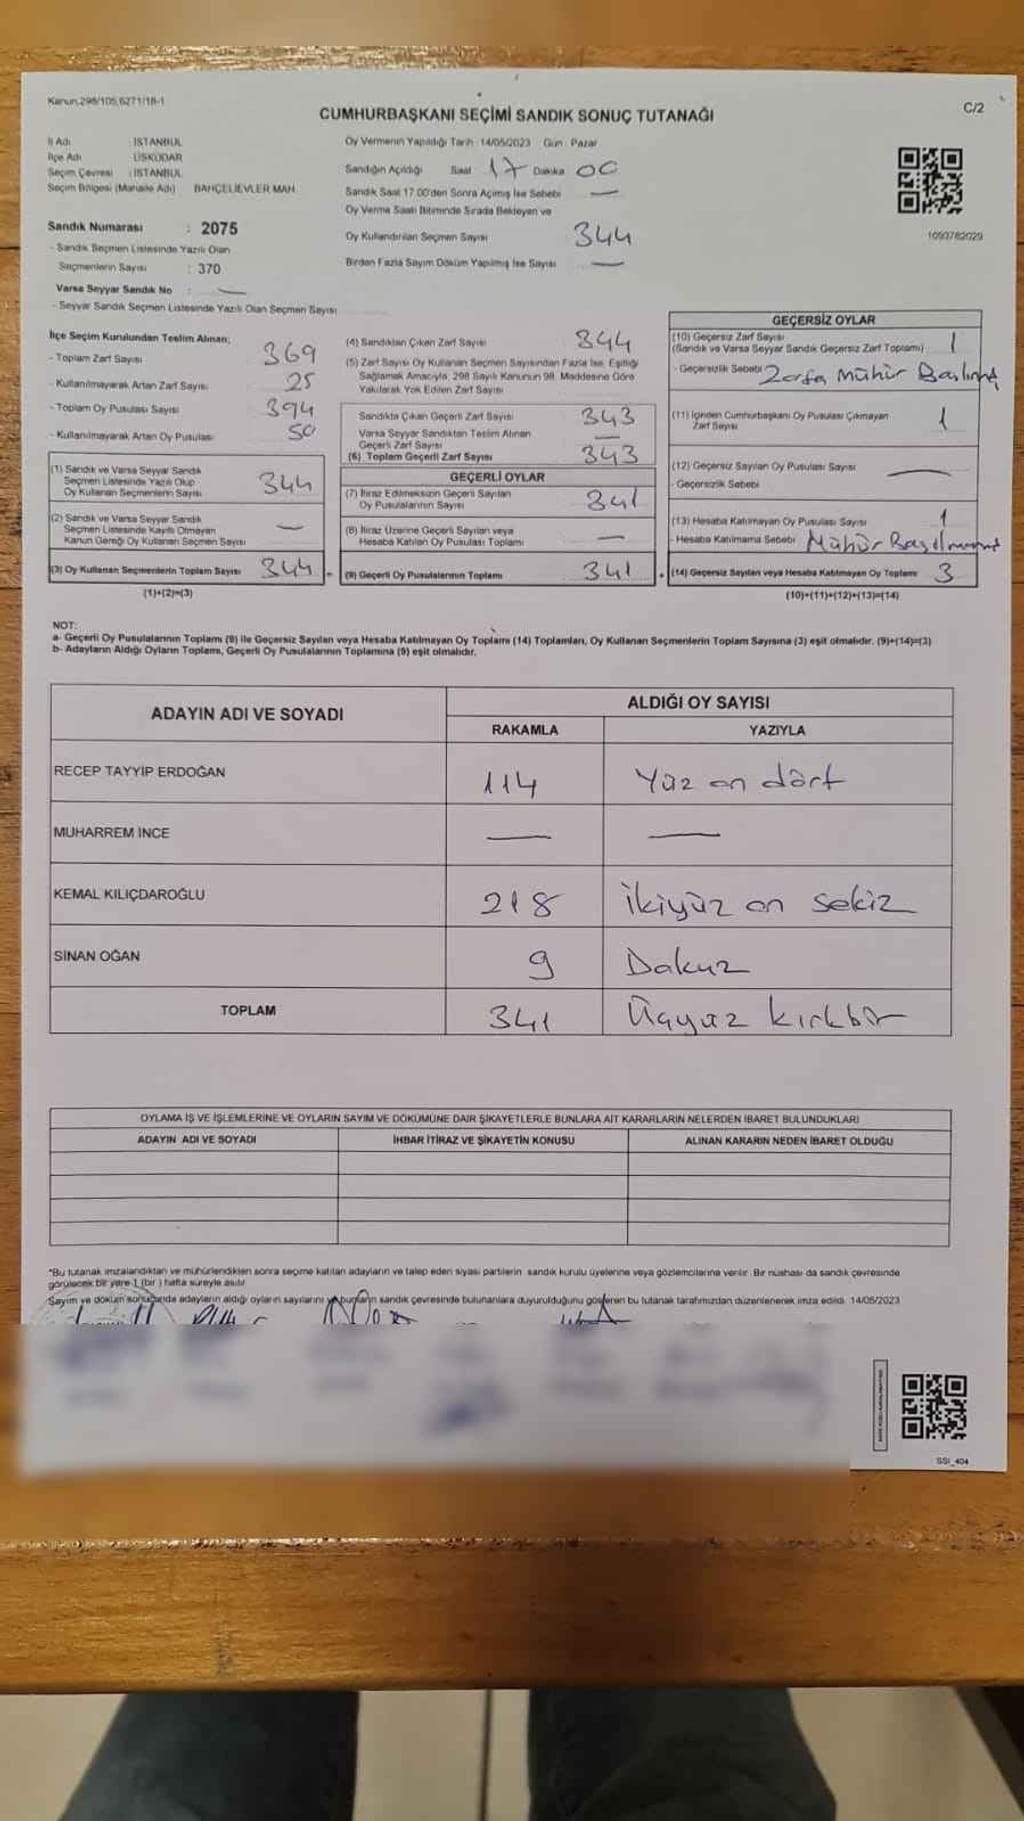 Kanun,298/105,6271/18-1
CUMHURBAŞKANI SEÇİMİ SANDIK SONUÇ TUTANAĞI
C/2
İl Adı : İSTANBUL
İlçe Adı : ÜSKÜDAR
Seçim Çevresi : İSTANBUL
Seçim Bölgesi (Mahalle Adı) BAHÇELİEVLER MAH.
Oy Vermenin Yapıldığı Tarih : 14/05/2023 Gün : Pazar
Sandığın Açıldığı Saat 17 Dakika 00
Sandık Saat 17.00'den Sonra Açılmış İse Sebebi —
Oy Verme Saati Bitiminde Sırada Bekleyen ve
Oy Kullandırılan Seçmen Sayısı 344
Birden Fazla Sayım Döküm Yapılmış İse Sayısı —
1090782029
Sandık Numarası : 2075
- Sandık Seçmen Listesinde Yazılı Olan
Seçmenlerin Sayısı : 370
Varsa Seyyar Sandık No : —
- Seyyar Sandık Seçmen Listesinde Yazılı Olan Seçmen Sayısı
İlçe Seçim Kurulundan Teslim Alınan;
- Toplam Zarf Sayısı 369
- Kullanılmayarak Artan Zarf Sayısı 25
- Toplam Oy Pusulası Sayısı 394
- Kullanılmayarak Artan Oy Pusulası 50
(1) Sandık ve Varsa Seyyar Sandık
Seçmen Listesinde Yazılı Olup
Oy Kullanan Seçmenlerin Sayısı 344
(2) Sandık ve Varsa Seyyar Sandık
Seçmen Listesinde Kayıtlı Olmayan
Kanun Gereği Oy Kullanan Seçmen Sayısı —
(3) Oy Kullanan Seçmenlerin Toplam Sayısı 344
(1)+(2)=(3)
(4) Sandıktan Çıkan Zarf Sayısı 344
(5) Zarf Sayısı Oy Kullanan Seçmen Sayısından Fazla İse, Eşitliği
Sağlamak Amacıyla, 298 Sayılı Kanunun 98. Maddesine Göre
Yakılarak Yok Edilen Zarf Sayısı
Sandıkta Çıkan Geçerli Zarf Sayısı 343
Varsa Seyyar Sandıktan Teslim Alınan
Geçerli Zarf Sayısı —
(6) Toplam Geçerli Zarf Sayısı 343
GEÇERLİ OYLAR
(7) İtiraz Edilmeksizin Geçerli Sayılan
Oy Pusulalarının Sayısı 341
(8) İtiraz Üzerine Geçerli Sayılan veya
Hesaba Katılan Oy Pusulası Toplamı —
(9) Geçerli Oy Pusulalarının Toplamı 341
GEÇERSİZ OYLAR
(10) Geçersiz Zarf Sayısı
(Sandık ve Varsa Seyyar Sandık Geçersiz Zarf Toplamı) 1
- Geçersizlik Sebebi Zarfa Mühür
(11) İçinden Cumhurbaşkanı Oy Pusulası Çıkmayan
Zarf Sayısı 1
(12) Geçersiz Sayılan Oy Pusulası Sayısı —
- Geçersizlik Sebebi
(13) Hesaba Katılmayan Oy Pusulası Sayısı 1
- Hesaba Katılmama Sebebi Mühür
(14) Geçersiz Sayılan veya Hesaba Katılmayan Oy Toplamı 3
(10)+(11)+(12)+(13)=(14)
NOT:
a- Geçerli Oy Pusulalarının Toplamı (9) ile Geçersiz Sayılan veya Hesaba Katılmayan Oy Toplamı (14) Toplamları, Oy Kullanan Seçmenlerin Toplam Sayısına (3) eşit olmalıdır. (9)+(14)=(3)
b- Adayların Aldığı Oyların Toplamı, Geçerli Oy Pusulalarının Toplamına (9) eşit olmalıdır.
ADAYIN ADI VE SOYADI
ALDIĞI OY SAYISI
RAKAMLA YAZIYLA
RECEP TAYYİP ERDOĞAN 114 Yüz on dört
MUHARREM İNCE — —
KEMAL KILIÇDAROĞLU 218 ikiyüz on sekiz
SİNAN OĞAN 9 Dokuz
TOPLAM 341 Üçyüz kırkbir
OYLAMA İŞ VE İŞLEMLERİNE VE OYLARIN SAYIM VE DÖKÜMÜNE DAİR ŞİKAYETLERLE BUNLARA AİT KARARLARIN NELERDEN İBARET BULUNDUKLARI
ADAYIN ADI VE SOYADI İHBAR İTİRAZ VE ŞİKAYETİN KONUSU ALINAN KARARIN NEDEN İBARET OLDUĞU
*Bu tutanak imzalandıktan ve mühürlendikten sonra seçime katılan adayların ve talep eden siyasi partilerin sandık kurulu üyelerine veya gözlemcilerine verilir. Bir nüshası da sandık çevresinde
görülecek bir yere 1 (bir) hafta süreyle asılır.
Sayım ve döküm sonucunda adayların aldığı oyların sayılarını ve bunların sandık çevresinde bulunanlara duyurulduğunu gösteren bu tutanak tarafımızdan düzenlenerek imza edildi. 14/05/2023
SSI_404